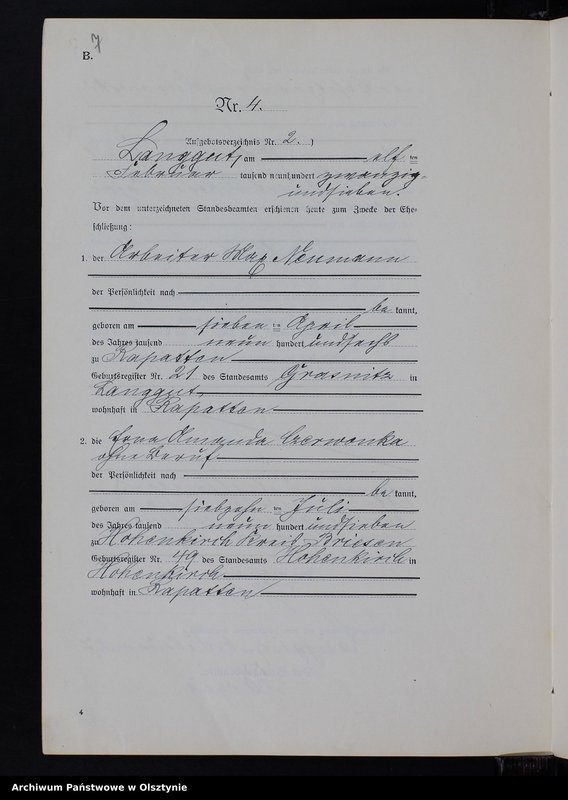 7
B.
Nr. 4.
Aufgebotsverzeichnis Nr. 2.)
Langgut, am elf ten
Februar tausend neunhundert zwanzig-
undsieben.
Vor dem unterzeichneten Standesbeamten erschienen heute zum Zwecke der Ehe-
schließung:
1. der Arbeiter Max Neumann
der Persönlichkeit nach
be kannt,
geboren am sieben ten April
des Jahres tausend neun hundert undsechs
zu Rapatten
Geburtsregister Nr. 21 des Standesamts Grasnitz in
Langgut
wohnhaft in Rapatten
2. die Erna Amanda Czerwonka
ohne Beruf
der Persönlichkeit nach
be kannt,
geboren am siebzehn ten Juli
des Jahres tausend neun hundert undsieben
zu Hohenkirch Kreis Briesen
Geburtsregister Nr. 49 des Standesamts Hohenkirch in
Hohenkirch
wohnhaft in Rapatten
4
Archiwum Państwowe w Olsztynie